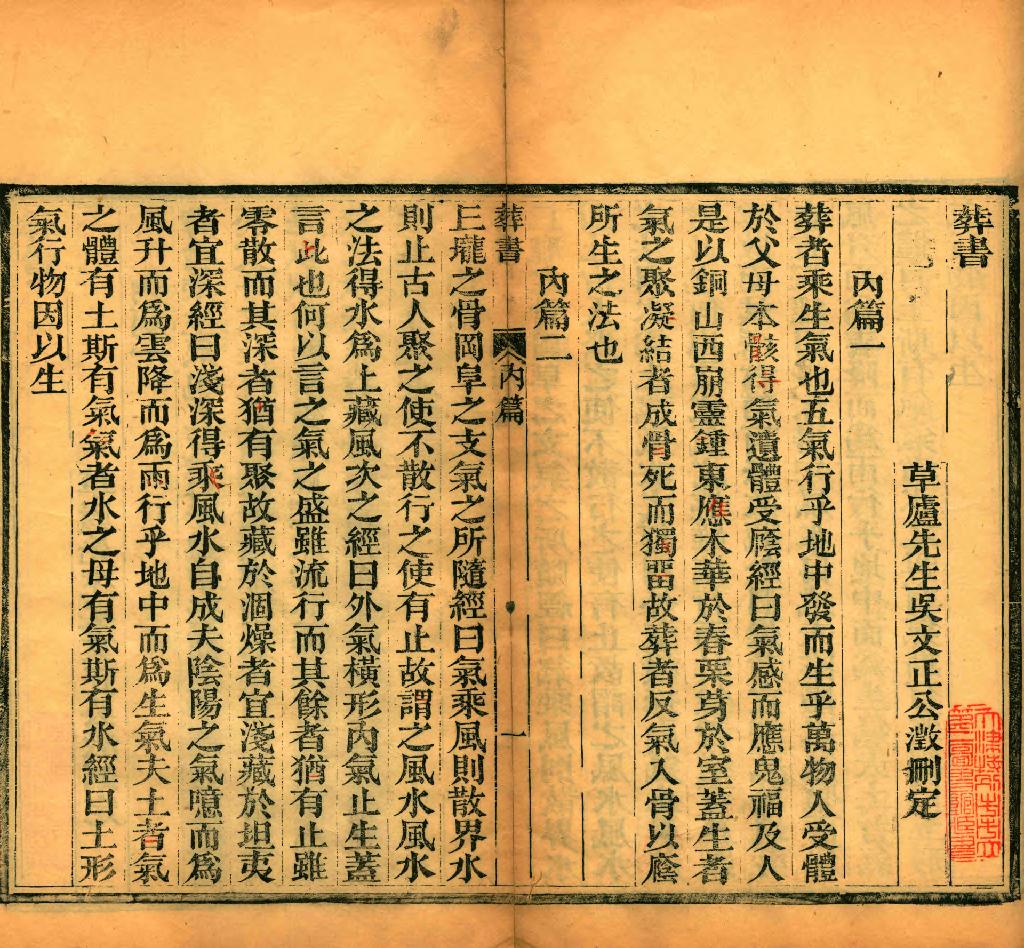 葬書
草廬先生吳文正公澂刪定
內篇一
葬者乘生氣也五氣行乎地中發而生乎萬物人受體
於父母本骸得氣遺體受廕經曰氣感而應鬼福及人
是以銅山西崩靈鍾東應木華於春栗芽於室蓋生者
氣之聚凝結者成骨死而獨畱故葬者反氣入骨以廕
所生之法也
內篇二
葬書 內篇 一
丘壠之骨岡阜之支氣之所隨經曰氣乘風則散界水
則止古人聚之使不散行之使有止故謂之風水風水
之法得水爲上藏風次之經曰外氣橫形內氣止生蓋
言此也何以言之氣之盛雖流行而其餘者猶有止雖
零散而其深者猶有聚故藏於涸燥者宜淺藏於坦夷
者宜深經曰淺深得乘風水自成夫陰陽之氣噫而爲
風升而爲雲降而爲雨行乎地中而爲生氣夫土者氣
之體有土斯有氣氣者水之母有氣斯有水經曰土形
氣行物因以生